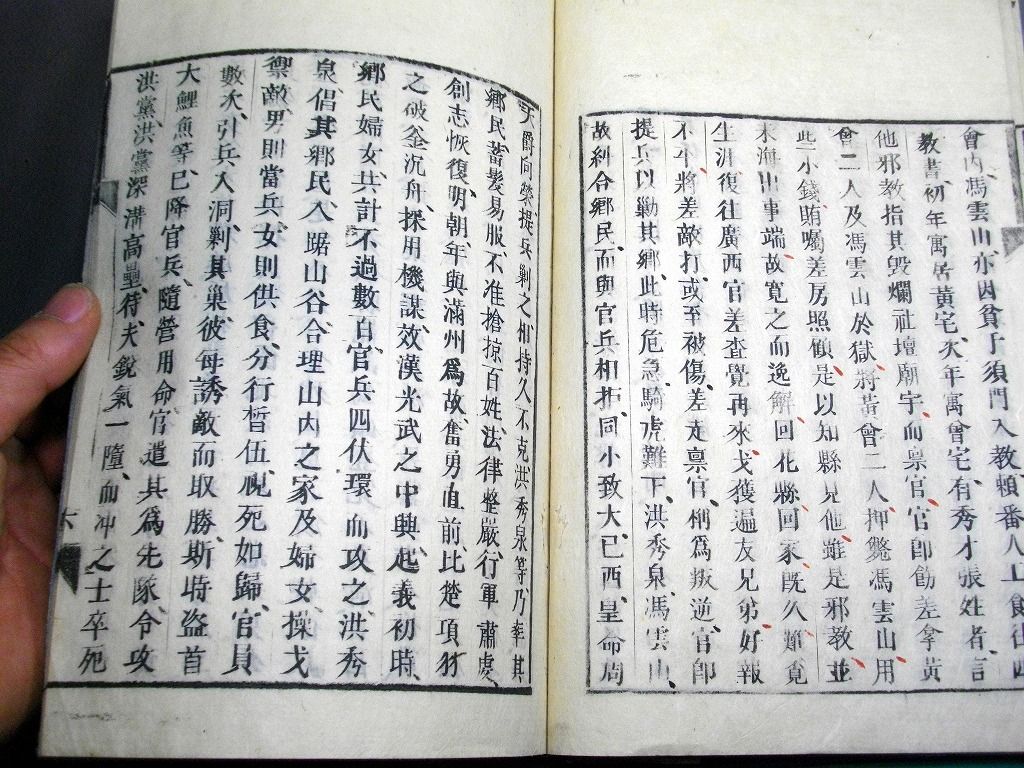 會內、馮雲山亦因貧才須門入教頼番人工食往四
教書、初年寓居黃宅、次年寓曾宅、有秀才張姓者、言
他邪教指其毀爛社壇廟宇、而禀官、官卽飭差拿黃
曾二人及馮雲山於獄、將黃曾二人押斃、馮雲山用
些小錢賄囑差房照顧、是以知縣見他雖是邪教、並
未海出事端、故寬之而逸解、回花縣、回家旣久、難覓
生涯、復往廣西、官差查覺再來、戈獲遍友兄弟好報
不平、將差敵打、或至被傷、差走禀官、稱爲叛逆、官卽
提兵以勦其鄉、此時危急、騎虎難下、洪秀泉、馮雲山、
故糾合鄉民、而與官兵相拒、同小致大、已酉、皇命周
天爵向榮提兵剿之、相持久不克、洪秀泉等乃率其
鄉民、蓄髮易服、不准搶掠百姓、法律整嚴、行軍肅處、
創志恢復、明朝年與滿州爲故、奮勇直前、比楚項羽
之破釜沉舟、採用機謀、效漢光武之中興、起義初時、
鄉民婦女、共計不過數百、官兵四伏環而攻之、洪秀
泉、倡其鄉民入踞山谷、合理山內之家及婦女、操戈
禦敵、男則當兵、女則供食、分行晳伍、視死如歸、官員
數次、引兵入洞、剿其巢、彼每誘敵而取勝、斯時盜首
大鯉魚等、已降官兵、隨營用命、官遣其爲先隊、令攻
洪黨、洪黨深溝高壘、待夫銳氣一隳、而冲之、士卒死
六